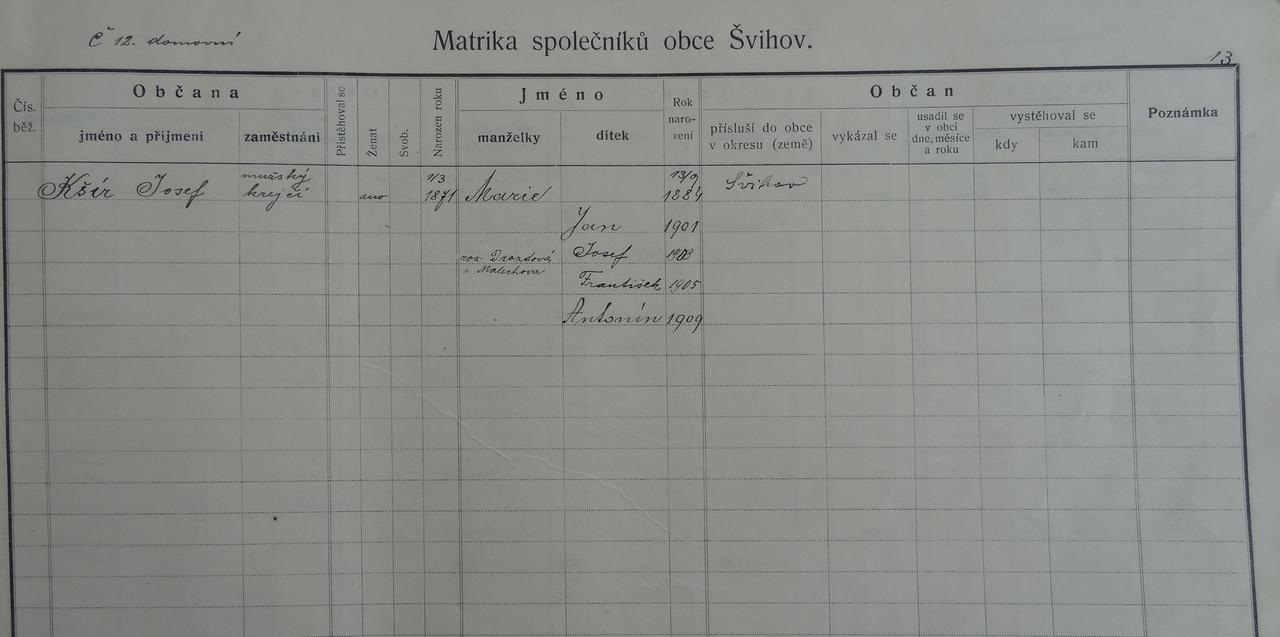 Č 12. domovní
Matrika společníků obce Švihov.
13
Čís. běž.
Občana
jméno a přijmení
zaměstnání
Přistěhoval se
Ženat
Svob.
Narozen roku
Jméno
manželky
dítek
Rok naro- zení
Občan
přísluší do obce v okresu (země)
vykázal se
usadil se v obci dne, měsíce a roku
vystěhoval se
kdy
kam
Poznámka
Kšír Josef mužský krejčí ano 1/3 1871 Marie 13/9 1884 Švihov
Jan 1901
roz. Drozdová Josef 1903
z Malechova
František 1905
Antonín 1909